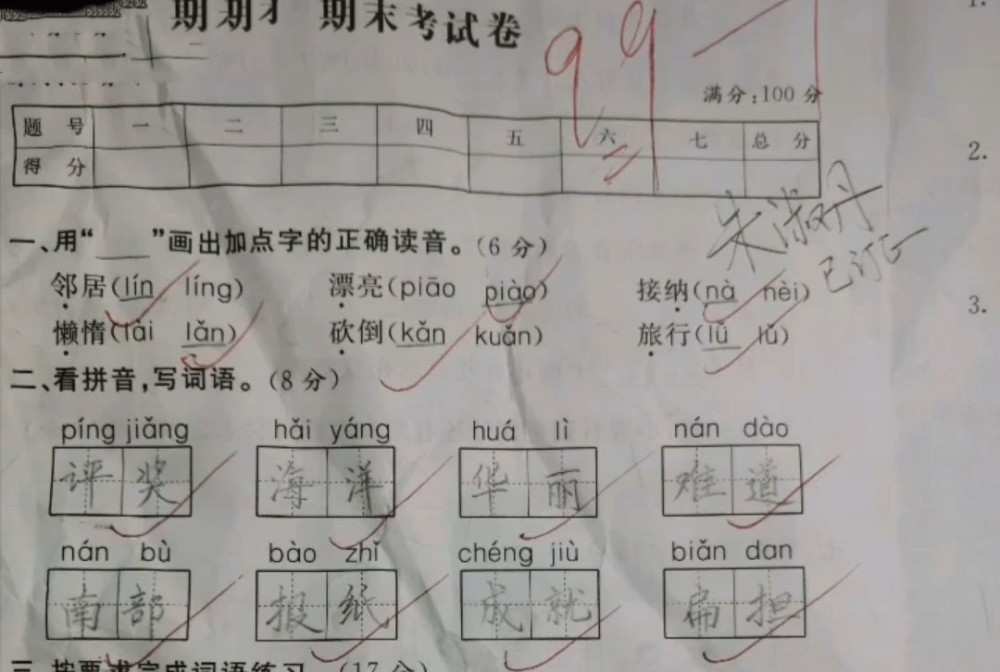 期末考试卷
99
满分:100分
题号 一 二 三 四 五 六 七 总分
得分
朱淑丹
已订正
一、用“____”画出加点字的正确读音。(6分)
邻居(lín líng) 漂亮(piāo piào) 接纳(nà nèi)
懒惰(lài lǎn) 砍倒(kǎn kuǎn) 旅行(lǚ lǔ)
二、看拼音,写词语。(8分)
píng jiǎng hǎi yáng huá lì nán dào
评奖 海洋 华丽 难道
nán bù bào zhǐ chéng jiù biǎn dan
南部 报纸 成就 扁担
三、按要求完成词语练习。(17分)
1.
2.
3.